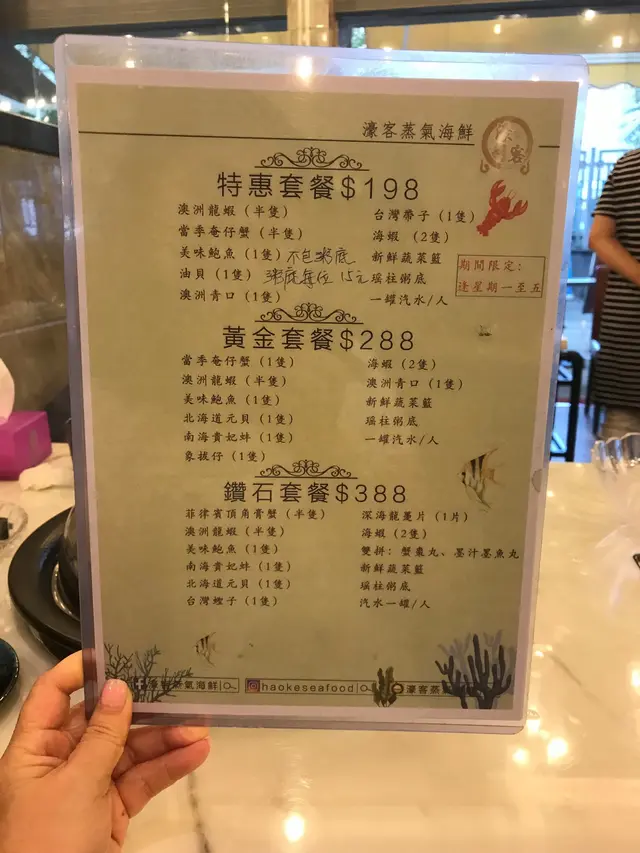 濠客蒸氣海鮮
特惠套餐$198
澳洲龍蝦（半隻）
當季奄仔蟹（半隻）
美味鮑魚（1隻）不包粥底
油貝（1隻）粥底每位 15元
澳洲青口（1隻）
台灣帶子（1隻）
海蝦（2隻）
新鮮蔬菜籃
瑶柱粥底
一罐汽水/人
期間限定：
逢星期一至五
黃金套餐$288
當季奄仔蟹（1隻）
澳洲龍蝦（半隻）
美味鮑魚（1隻）
北海道元貝（1隻）
南海貴妃蚌（1隻）
象拔仔（1隻）
海蝦（2隻）
澳洲青口（1隻）
新鮮蔬菜籃
瑶柱粥底
一罐汽水/人
鑽石套餐$388
菲律賓頂角膏蟹（半隻）
澳洲龍蝦（半隻）
美味鮑魚（1隻）
南海貴妃蚌（1隻）
北海道元貝（1隻）
台灣蟶子（1隻）
深海龍躉片（1片）
海蝦（2隻）
雙拼：蟹棗丸、墨汁墨魚丸
新鮮蔬菜籃
瑶柱粥底
汽水一罐/人
濠客蒸氣海鮮
haokeseafood
濠客蒸